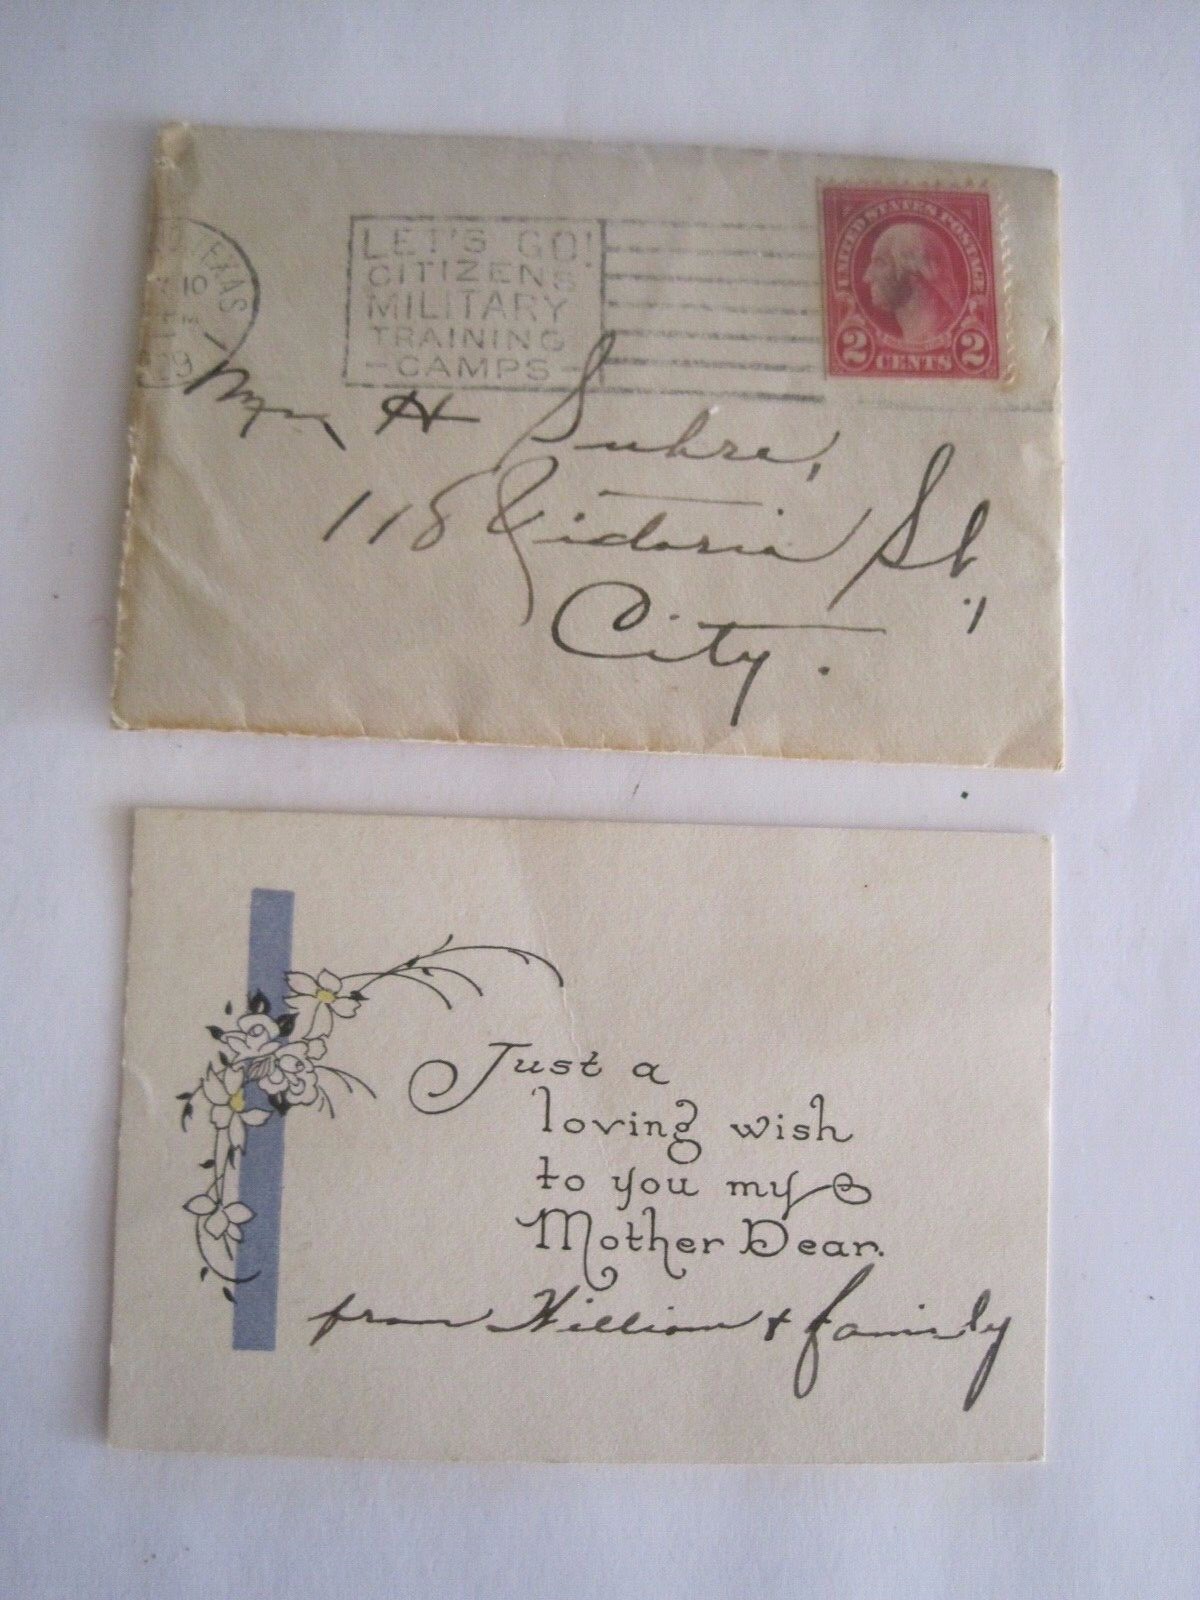 TEXAS
10
PM
29
LET'S GO!
CITIZENS
MILITARY
TRAINING
-CAMPS-
UNITED STATES POSTAGE
2 CENTS 2
Mrs H Suhre,
118 Victoria St,
City.
Just a
loving wish
to you my
Mother Dear.
from William + family